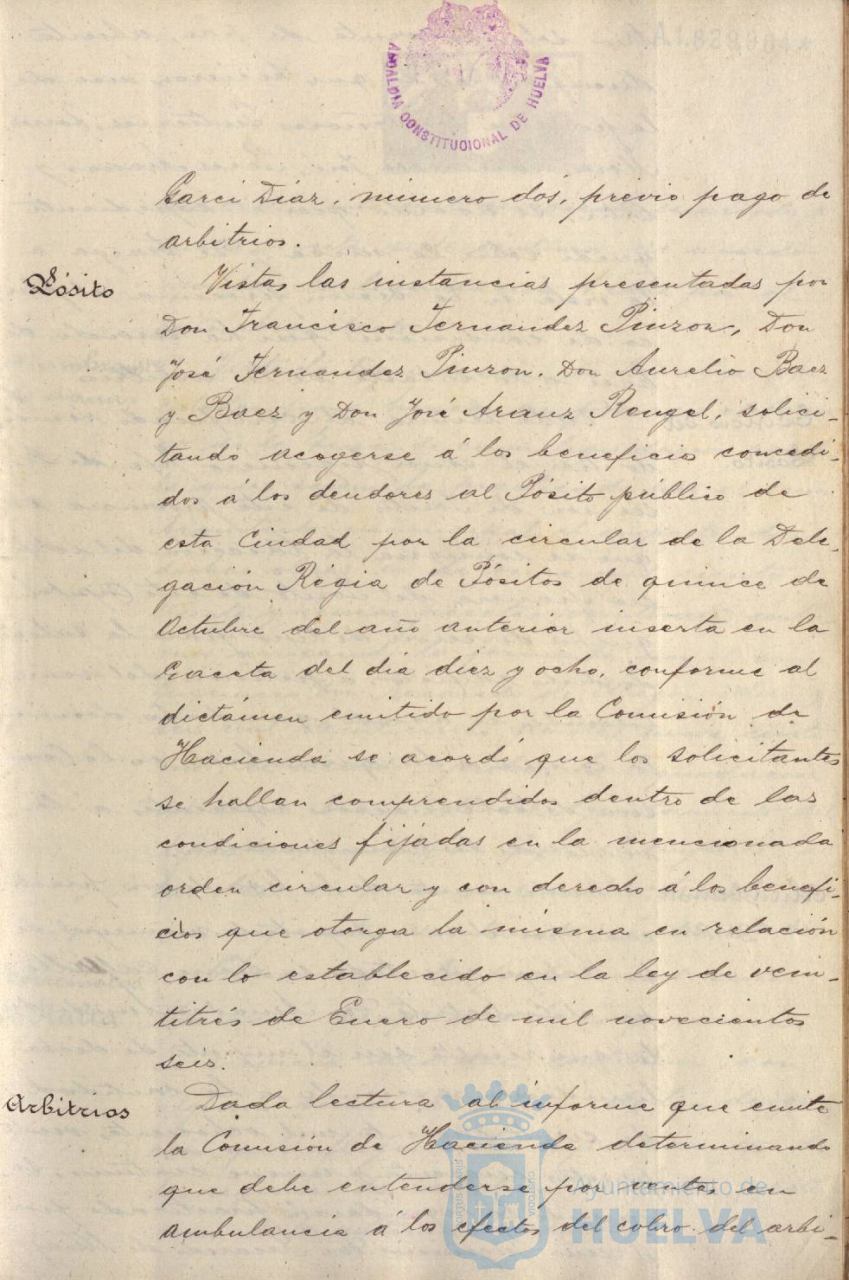 ALCALDIA CONSTITUCIONAL DE HUELVA
Garci Diaz, número dós, previo pago de
arbitrios.
Pósito
Vistas las instancias presentadas por
Don Francisco Fernandez Pinzon, Don
José Fernandez Pinzon, Don Aurelio Baez
y Baez y Don José Aranz Rengel, solici-
tando acogerse á los beneficio concedi-
dos á los deudores al Pósito público de
esta Ciudad por la circular de la Dele-
gación Régia de Pósitos de quince de
Octubre del año anterior inserta en la
Gaceta del dia diez y ocho, conforme al
dictámen emitido por la Comisión de
Hacienda se acordó que los solicitantes
se hallan comprendidos dentro de las
condiciones fijadas en la mencionada
orden circular y con derecho á los benefi-
cios que otorga la misma en relación
con lo establecido en la ley de vein-
titrés de Enero de mil novecientos
seis.
Arbitrios
Dada lectura al informe que emite
la Comisión de Hacienda determinando
que debe entenderse por ventas en
ambulancia á los efectos del cobro del arbi-
Ayuntamiento de
HUELVA